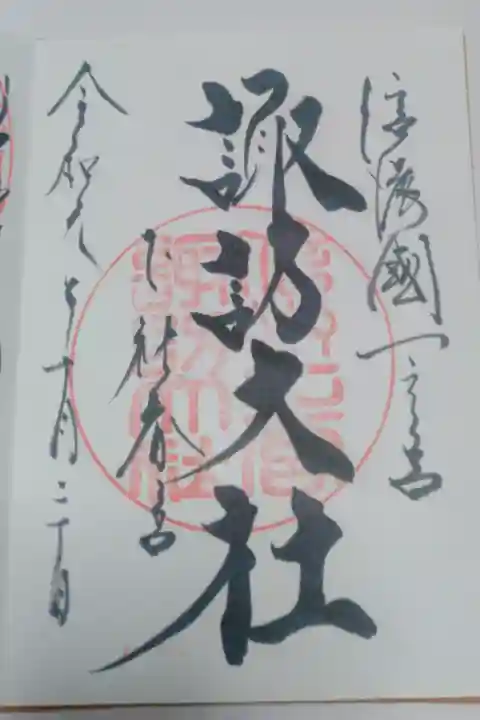 信濃國一之宮
諏訪大社
下社春宮
令和元年十月二十日